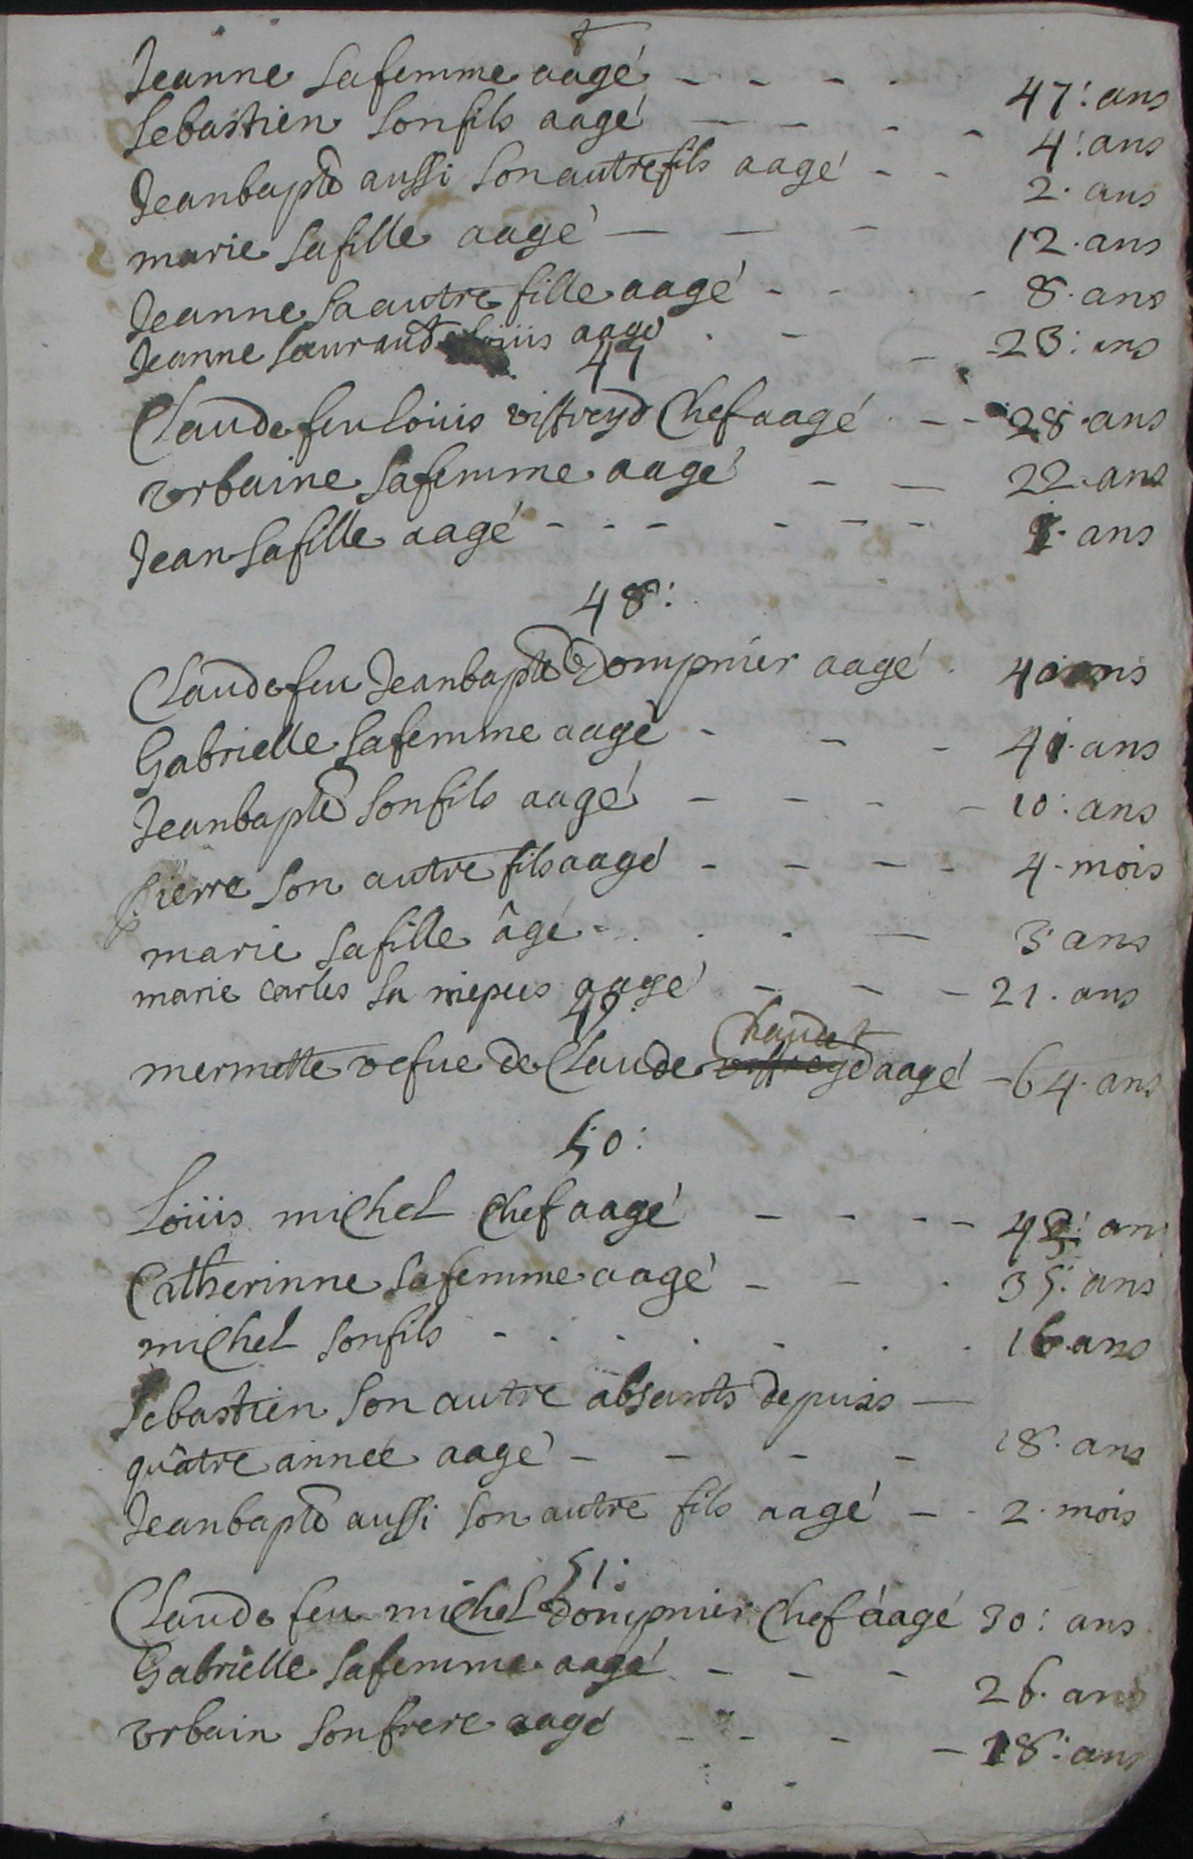 Jeanne sa femme aagé - - - - 47: ans
Sebastien son fils aagé - - - - 4: ans
Jeanbapte aussi son autre fils aagé - - 2. ans
marie sa fille aagé - - - 12. ans
Jeanne sa autre fille aagé - - - - 8. ans
Jeanne louis aagé - - - 23: ans
47
Claude feu louis vistreyd Chef aagé - - 28. ans
vrbaine sa femme aagé - - 22. ans
Jean sa fille aagé - - - - - - 1. ans
48:
Claude feu Jeanbapte Dompnier aagé . 40 ans
Gabrielle sa femme aagé - - - 41. ans
Jeanbapte son fils aagé - - - - 10: ans
pierre son autre fils aagé - - - - 4. mois
marie sa fille âgé - . . - - 3 ans
marie carles sa niepus aagé - - - 21. ans
49.
mermette vefue de Claude chaudet aagé - 64. ans
50:
Loüis michel Chef aagé - - - - 42: ans
Catherinne sa femme aagé - - . 35: ans
michel son fils - . . . - . . 16. ans
Sebastien son autre absents depuis -
quâtre année aagé - - - - 18. ans
Jeanbapte aussi son autre fils aagé - - 2. mois
51:
Claude feu michel dompnier Chef áagé 30: ans
Gabriëlle sa femme aagé - - - 26. ans
vrbain son frere aagé - - - - 18: ans